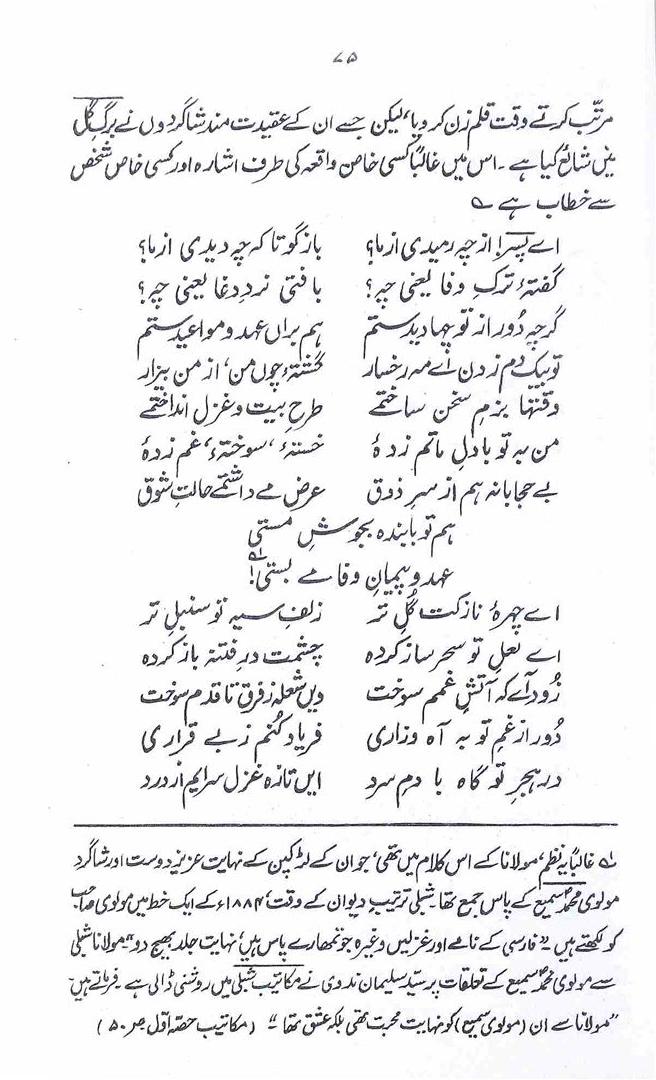 ۷۵
مرتّب کرتے وقت قلم زن کر دیا، لیکن جسے ان کے عقیدت مند شاگردوں نے برگِ گل
میں شائع کیا ہے ۔ اس میں غالباً کسی خاص واقعہ کی طرف اشارہ اور کسی خاص شخص
سے خطاب ہے ؎
اے پسر! از چہ رمیدی از ما؟ باز گو تا کہ چہ دیدی از ما؟
گفتۂ ترکِ وفا یعنی چہ؟ باختی نردِ دغا یعنی چہ؟
گرچہ دُور از تو چہا دیدستم ہم براں عہد و مواعیدستم
تو بیک دم زدن اے مہ رخسار گشتۂ چوں من، از من بیزار
وقتہا بزمِ سخن ساختمے طرحِ بیت و غزل انداختمے
من بہ تو با دلِ ماتم زدۂ خستۂ، سوختۂ، غم زدۂ
بے حجابانہ ہم از سرِ ذوق عرض مے داشتمے حالتِ شوق
ہم تو با بندہ بجوشِ مستی
عہد و پیمانِ وفا مے بستی! ؎۱
اے چہرۂ نازکت گلِ تر زلفِ سیہِ تو سنبلِ تر
اے لعلِ تو سحر ساز کردہ چشمت درِ فتنہ باز کردہ
زُود آے کہ آتشِ غمم سوخت ویں شعلہ ز فرق تا قدم سوخت
دُور از غمِ تو بہ آہ و زاری فریاد کُنم ز بے قراری
در ہجرِ تو گاہ با دمِ سرد ایں تازہ غزل سرایم از درد
؎۱ غالباً یہ نظم، مولانا کے اس کلام میں تھی، جو ان کے لڑکپن کے نہایت عزیز دوست اور شاگرد
مولوی محمد سمیع کے پاس جمع تھا۔ شبلی ترتیبِ دیوان کے وقت، ۱۸۸۴ء کے ایک خط میں مولوی صاحب
کو لکھتے ہیں "فارسی کے نامے اور غزلیں وغیرہ جو تمھارے پاس ہیں، نہایت جلد بھیج دو" مولانا شبلی
سے مولوی محمد سمیع کے تعلقات پر سیّد سلیمان ندوی نے مکاتیبِ شبلی میں روشنی ڈالی ہے ۔ فرماتے ہیں
"مولانا سے ان (مولوی سمیع) کو نہایت محبت تھی بلکہ عشق تھا" (مکاتیب حصّہ اوّل ص ۵۰)